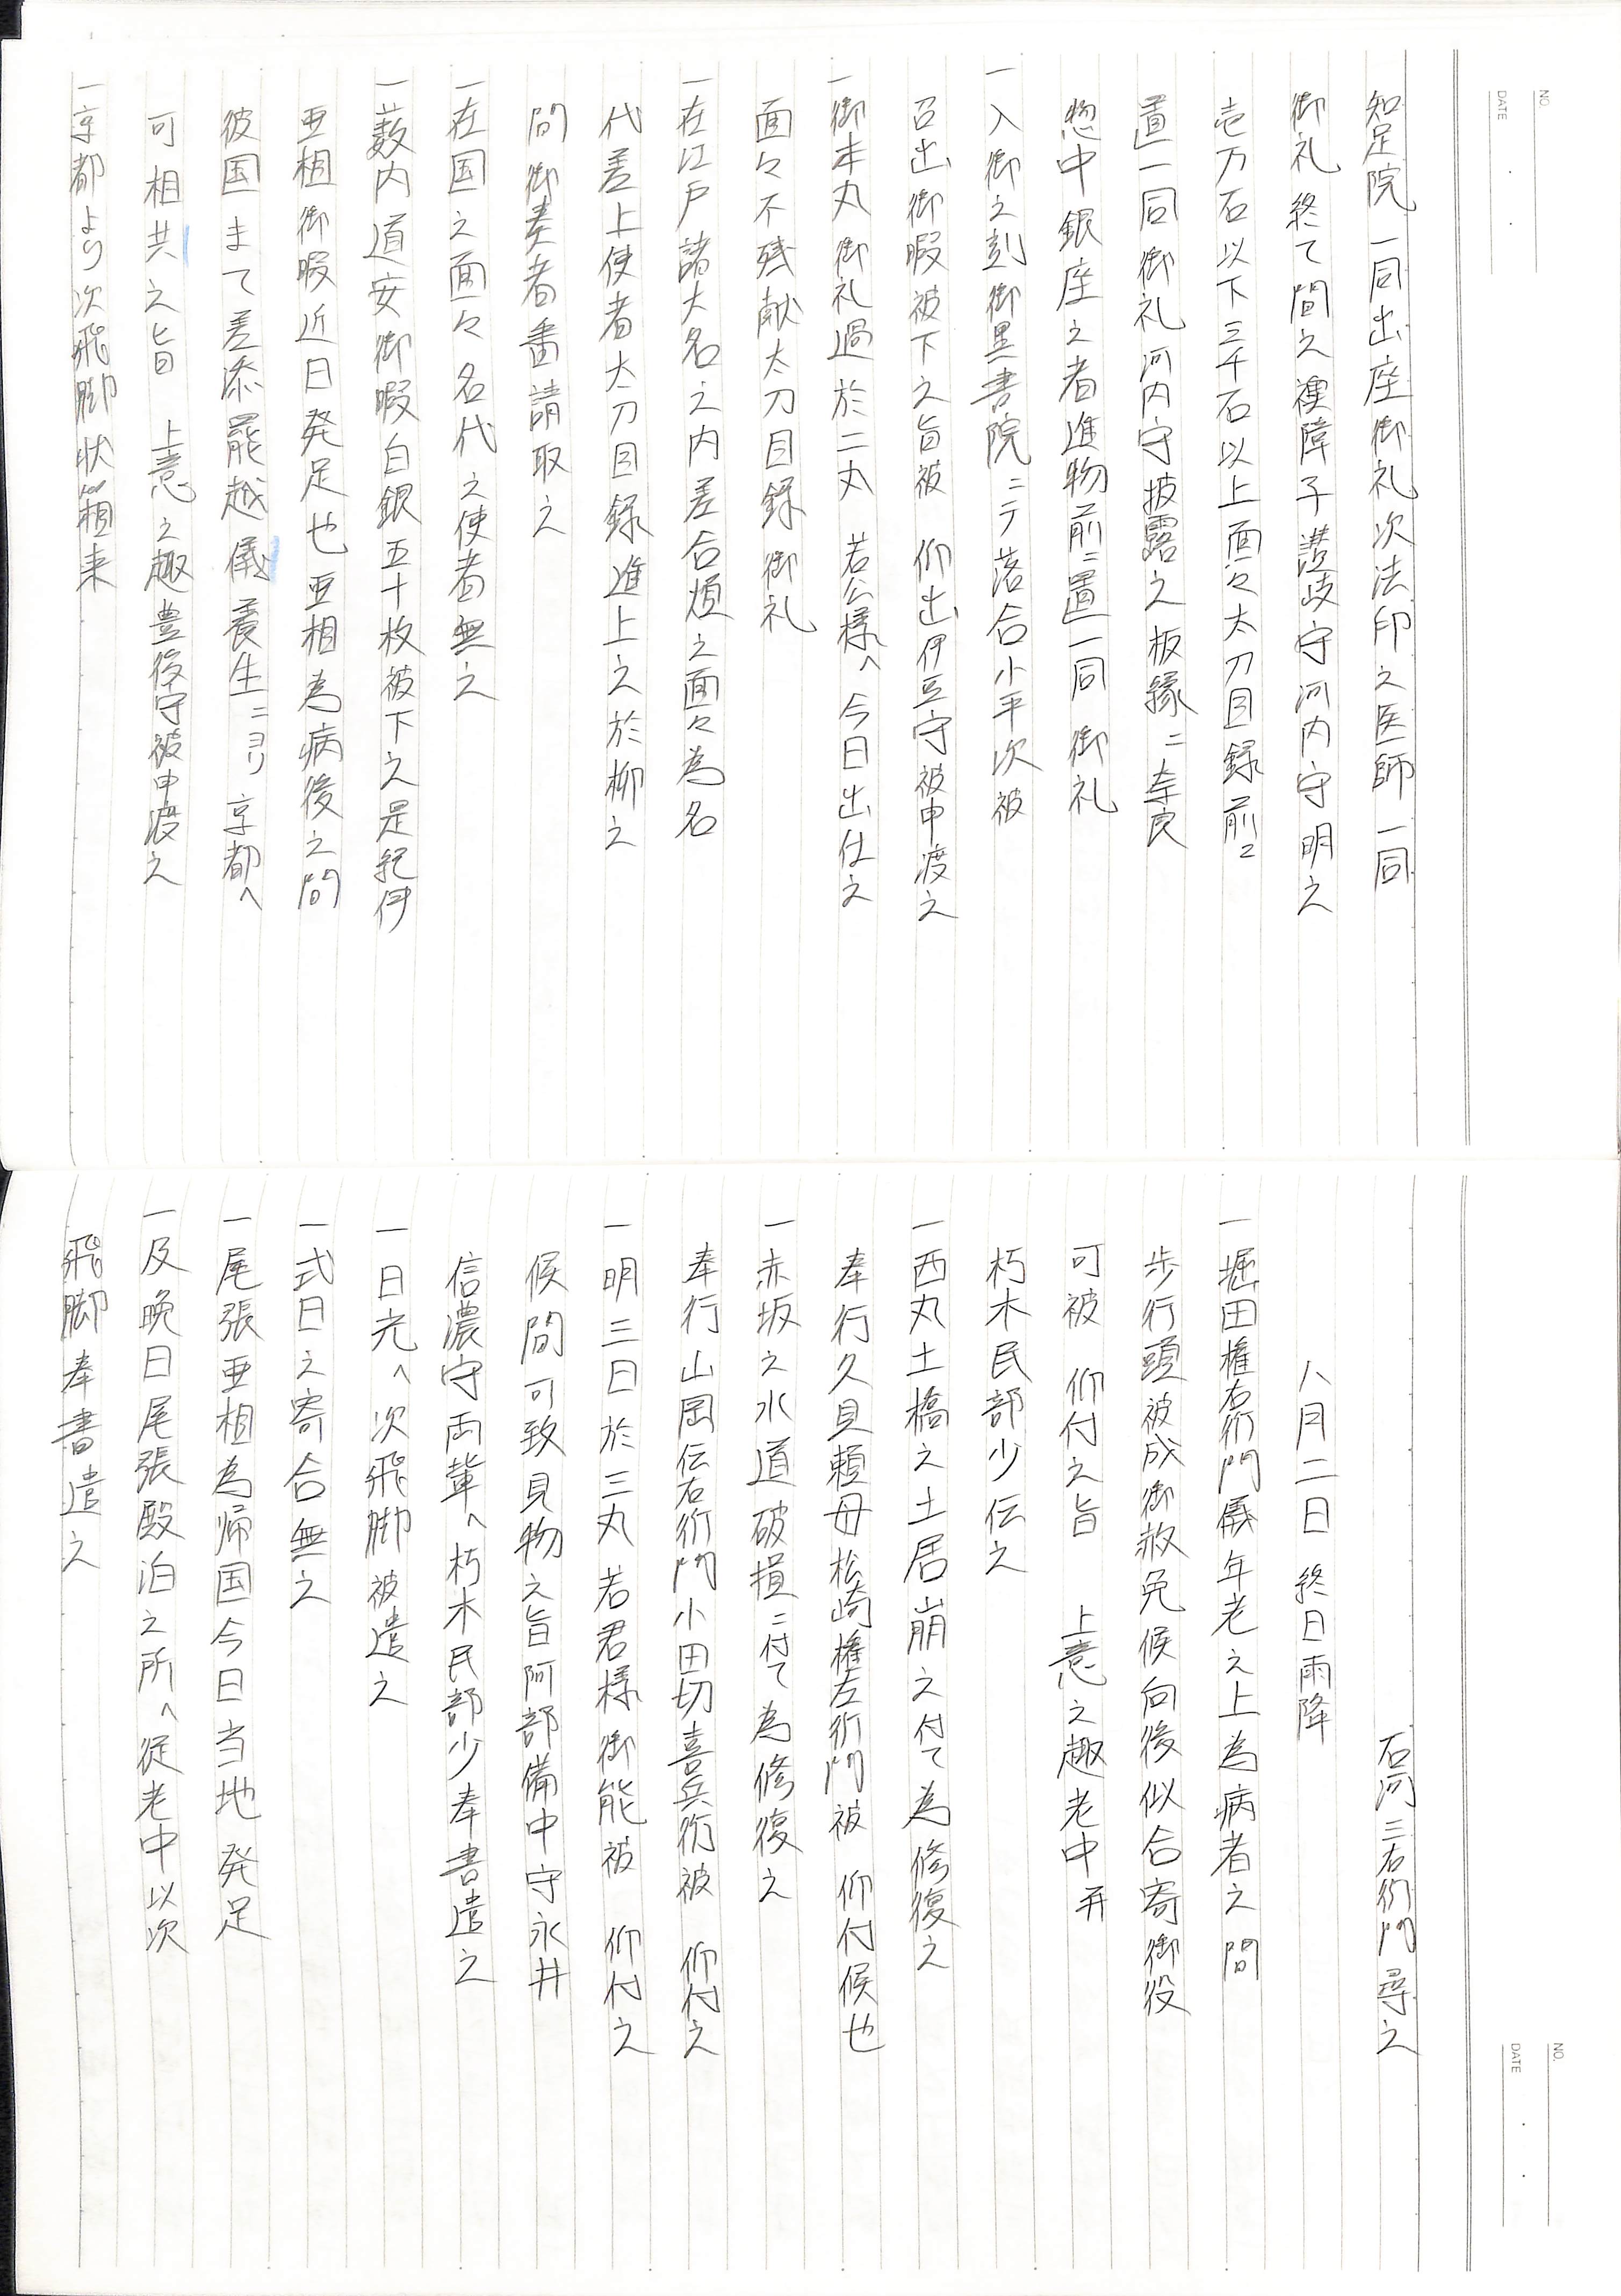 NO.
DATE
知足院一同出座御礼次法印之医師一同
御礼終て間之襖障子讃岐守河内守明之
壱万石以下三千石以上面々太刀目録前ニ
置一同御礼河内守披露之板縁ニ奈良
惣中銀座之者進物前ニ置一同御礼
一入御之刻御黒書院ニテ落合小平次被
召出御暇被下之旨被 仰出伊豆守被申渡之
一御本丸御礼過於二丸 若公様へ今日出仕之
面々不残献太刀目録御礼
一在江戸諸大名之内差合煩之面々為名
代差上使者太刀目録進上之於柳之
間御奏者番請取之
一在国之面々名代之使者無之
一薮内道安御暇白銀五十枚被下之是紀伊
亜相御暇近日発足也亜相為病後之間
彼国まて差添罷越儀養生ニヨリ京都へ
可相共之旨 上意之趣豊後守被申渡之
一京都より次飛脚状箱来
NO.
DATE
石河三右衛門尋之
八月二日 終日雨降
一堀田権右衛門儀年老之上為病者之間
歩行頭被成御赦免候向後似合寄御役
可被 仰付之旨 上意之趣老中并
朽木民部少伝之
一西丸土橋之土居崩之付て為修復之
奉行久貝頼母松崎権左衛門被 仰付候也
一赤坂之水道破損ニ付て為修復之
奉行山岡伝右衛門小田切喜兵衛被 仰付之
一明三日於三丸若君様御能被 仰付之
候間可致見物之旨阿部備中守永井
信濃守両輩へ朽木民部少奉書遣之
一日光へ次飛脚被遣之
一式日之寄合無之
一尾張亜相為帰国今日当地発足
一及晩日尾張殿泊之所へ従老中以次
飛脚奉書遣之